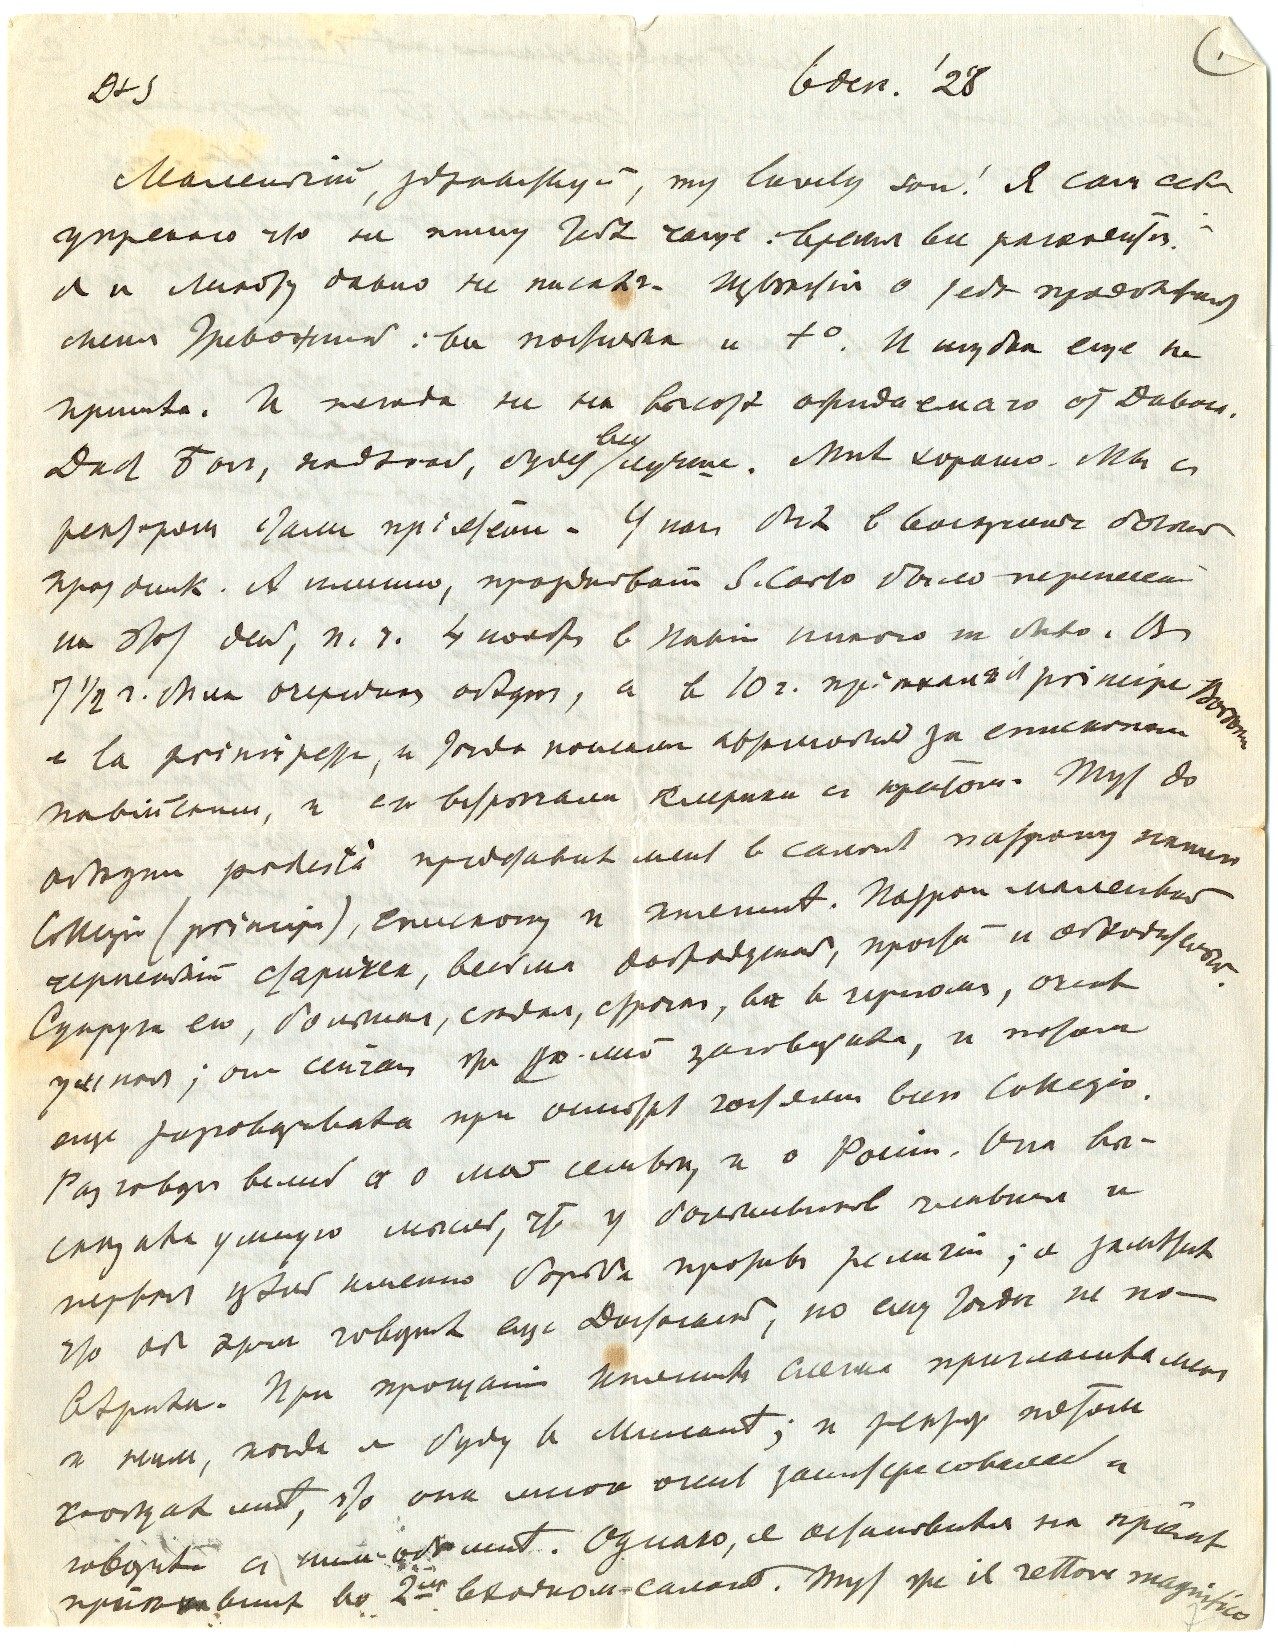 1.
D+S 6 дек. '28
Маленькій, здравствуй, my lovely son! Я сам себя
упрекаю что не пишу тебѣ чаще: время все расходится.
Я и Лидіи давно не писалъ. Извѣстія о тебѣ продолжаютъ
меня тревожить: вся постелька и t°. И шубка еще не
пришла. И погода не на высотѣ ожидаемаго от Давоса.
Даст Бог, надѣюсь, будет все лучше. Мнѣ хорошо. Мы с
ректором стали пріятели. У нас был в воскресенье большой
праздник. А именно, празднованіе S. Carlo было перенесено
на этот день, п. ч. 4 ноября в Павіи никого не было. В
7 1/2 ч. была очередная обѣдня, а в 10 ч. пріѣхали il principe Borromeo
e la principessa, и тогда послали автомобиль за епископом
павійским, и его встрѣчали клирики с крестом. Тут до
обѣдни podestà представил меня в салонѣ патрону нашего
Collegio (principe), епископу и княгинѣ. Патрон маленькій
черненькій старичек, весьма добродушный, простой и обходительный.
Супруга его, большая, сѣдая, строгая, вся в черном, очень
умная; она сейчас же со мной заговорила, и потом
еще разговаривала при осмотрѣ гостями всего Collegio.
Разговор велся о моей семьѣ и о Россіи. Она вы-
сказала умную мысль, что у большевиков главная и
первая цѣль именно борьба против религіи; я замѣтил
что об этом говорил еще Достоевскій, но ему тогда не по-
вѣрили. При прощаніи княгиня слегка приглашала меня
к ним, когда я буду в Миланѣ; и ректор потом
сказал мнѣ, что она мною очень заинтересовалась и
говорила с ним обо мнѣ. Однако, я остановился на пріемѣ
во 2ом входном салонѣ. Тут же il rettore magnifico